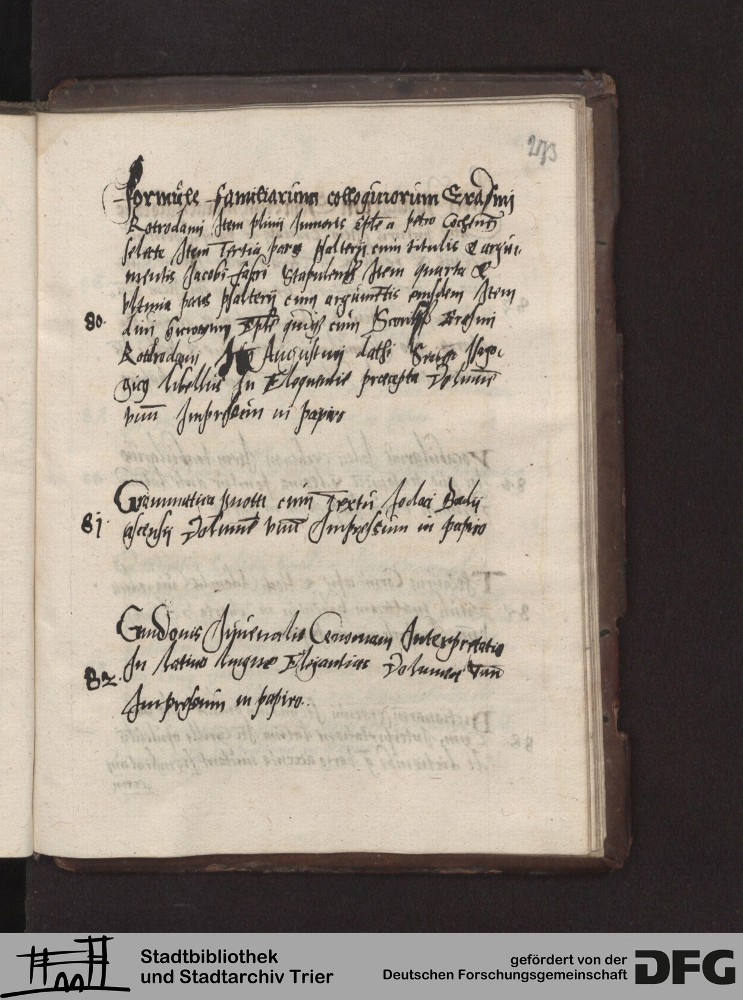 273
Formule familiarium colloquiorum Erasmi
Rotrodami Item plinij Iunioris Eple a petro
selecte Item Tertia pars psalterij cum titulis & argu-
mentis Jacobi fabri Stapulensis Item quarta &
Vltima pars psalterij cum argumentis eiusdem Item
80. diui hieronymi Eple cum Erasmi
Rotterodami Augustini dathi Isago-
gicus libellus in Eloquentie precepta Volumen
vnum Impressum in papiro
81. Grammatica cum Textu Jodoci Badij
ascensij Volumen vnum Impressum in papiro
Guidonis Iuuenalis Cenomani Interpretatio
82. In latine lingue Elegantias Volumen vnum
Impressum in papiro.
Stadtbibliothek
und Stadtarchiv Trier
gefördert von der
Deutschen Forschungsgemeinschaft
DFG